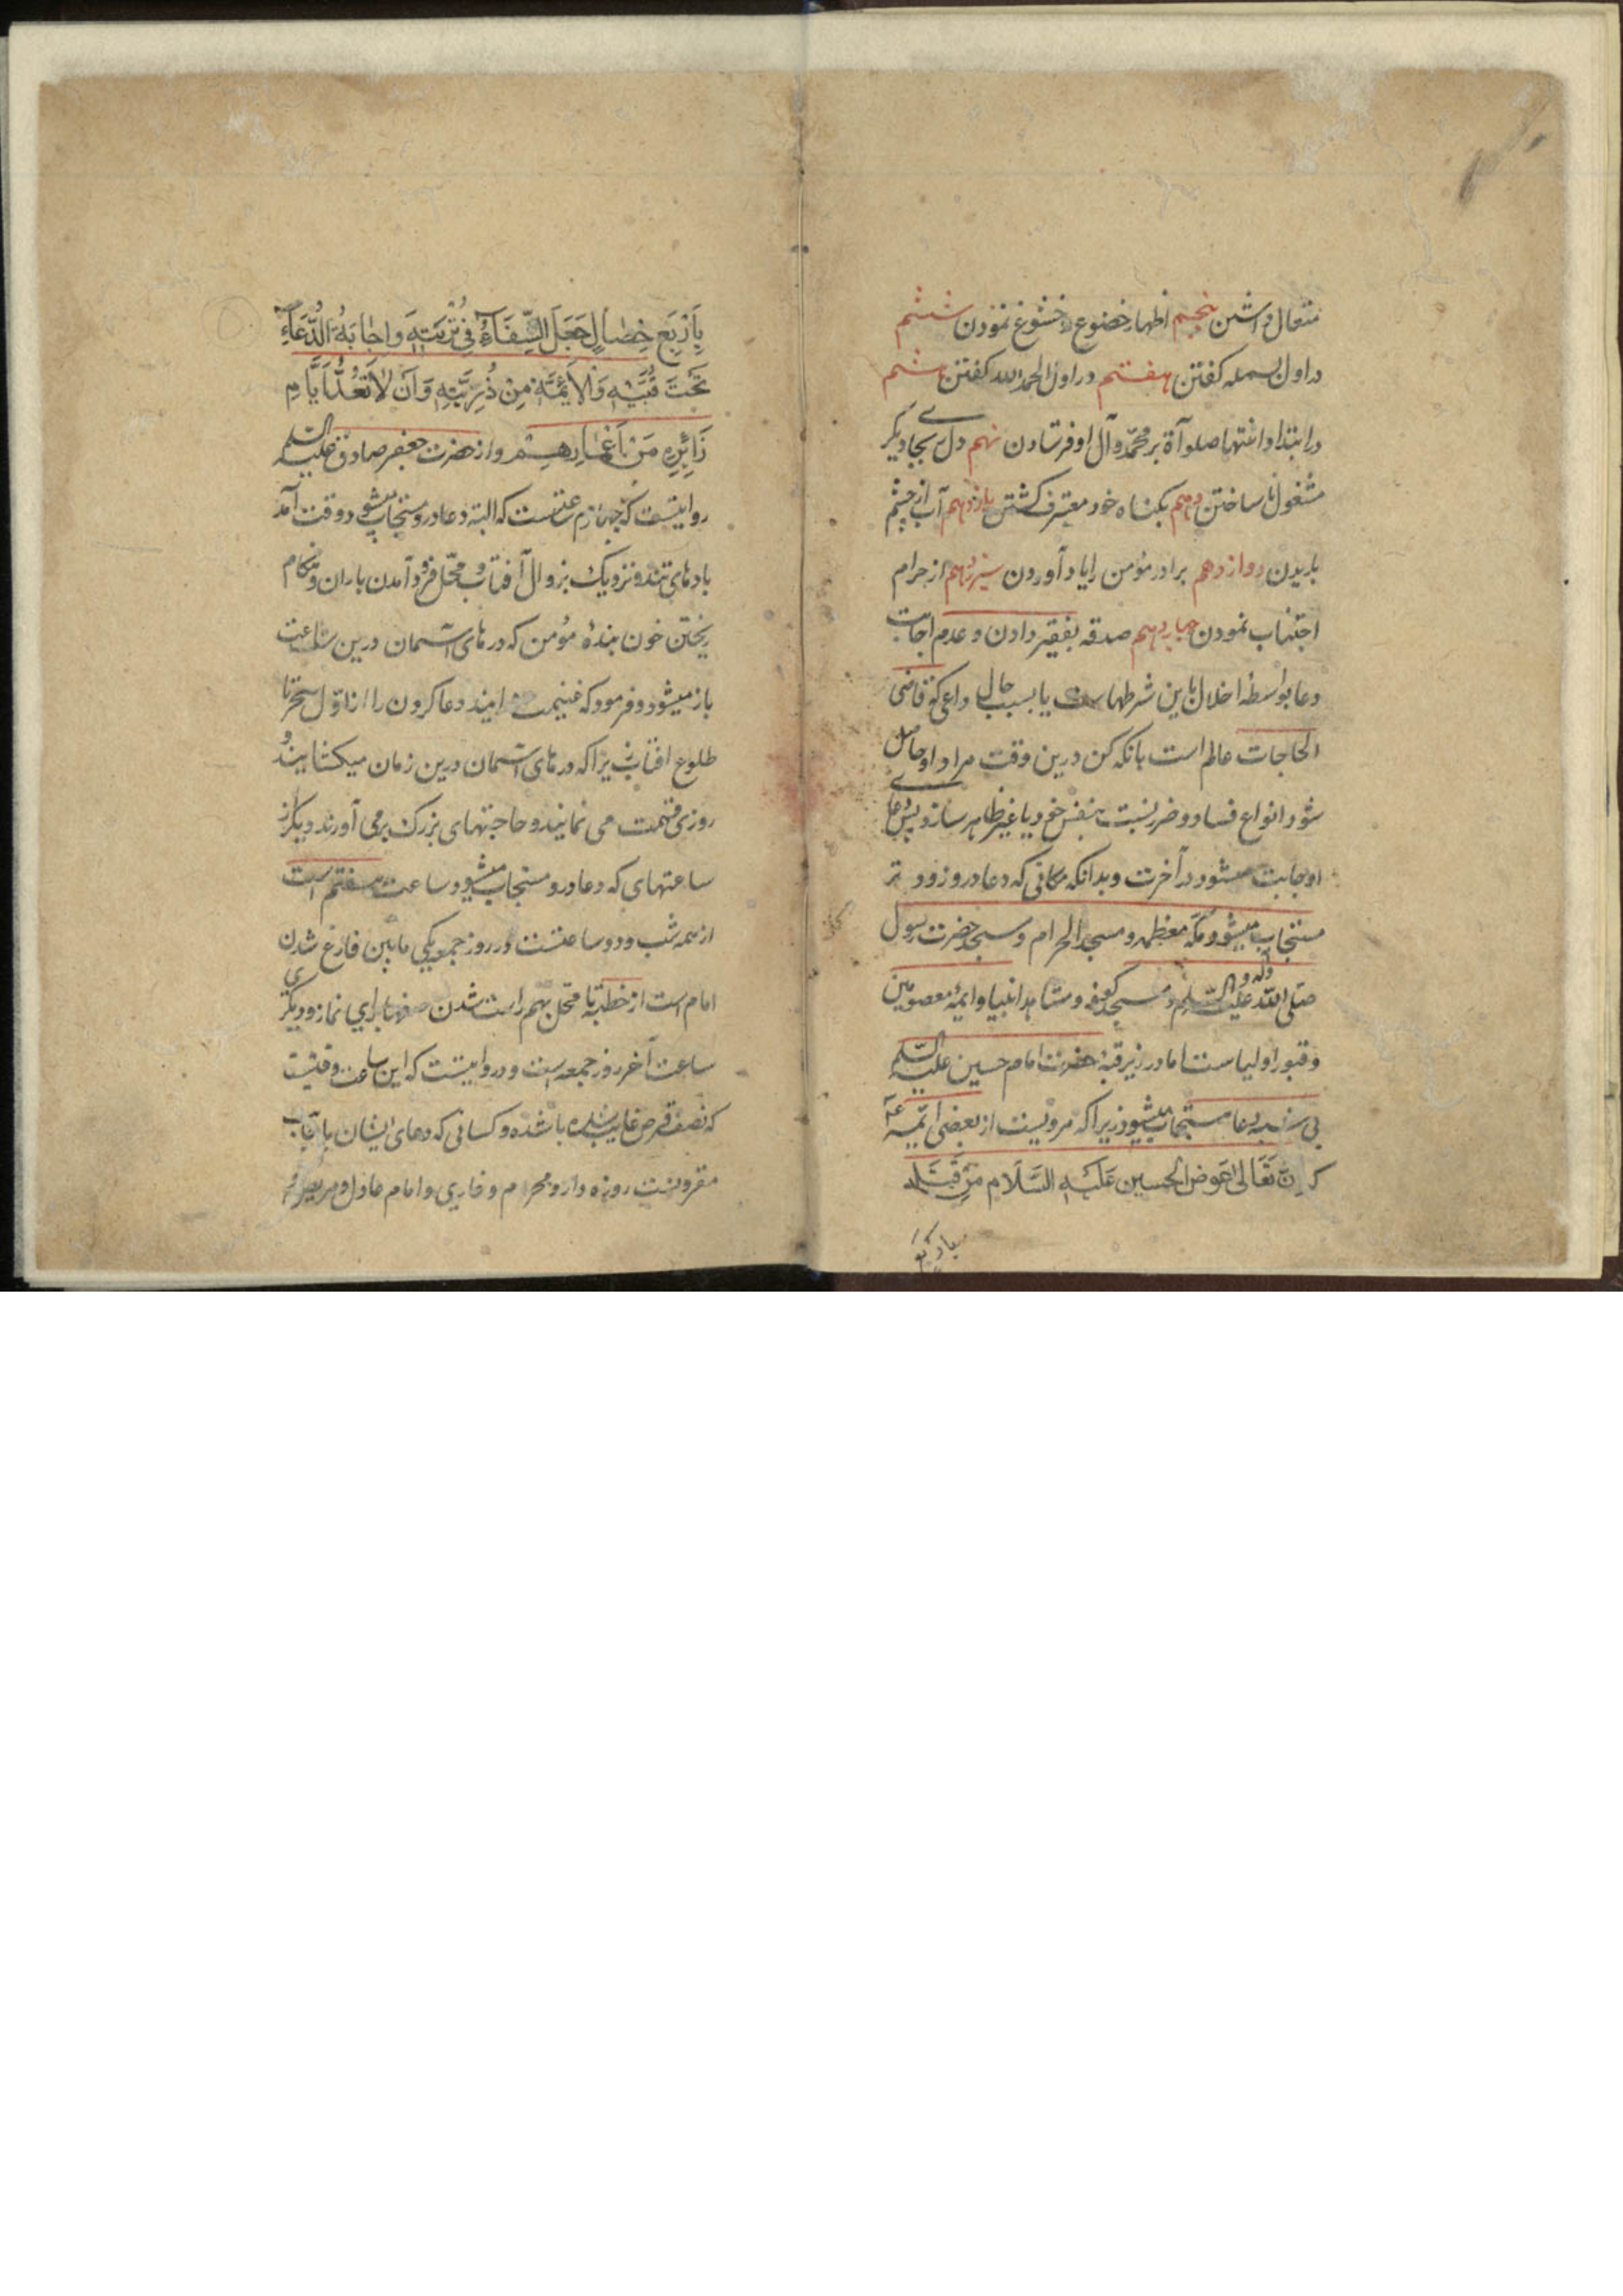 متعال داشتن پنجم اظهار خضوع و خشوع نمودن ششم
در اول بسمله کفتن هفتم در اول الحمد لله کفتن هشتم
در ابتدا و انتها صلوآة بر محمد وآل او فرستادن نهم دل بجای دیگر
مشغول نا ساختن دهم بکناه خود معترف کشتن یازدهم آب از چشم
باریدن دوازدهم برادر مؤمن را یاد آوردن سیزدهم از حرام
اجتناب نمودن چهاردهم صدقه بفقیر دادن و عدم اجابت
دعا بواسطه اخلال باین شرطهاست یا بسبب حال داعی که قاضی
الحاجات عالم است بانکه کن درین وقت مراد او حاصل
شود انواع فساد و ضرر نسبت بنفس خود یا غیر ظاهر سازد پس دعای
او جابت میشود در آخرت و بدانکه مکانی که دعا درو زود تر
مستجاب میشود مکّه معظمه و مسجد الحرام و مسجد حضرت رسول
صلی الله علیه و آله و السلم و مسجد کوفه و مشاهد انبیا و ایمهٔ معصومین
و قبور اولیاست اما در زیر قبهٔ حضرت امام حسین علیه السلم
بی شبهه دعا مستجاب میشود زیرا که مرویست از بعضی ائمّه
که اِنّ تَعَالیٰ عَوض الحسین عَلَیْهِ السَّلَام مِن قَتلِه
باربع
بِاَرْبَعِ خِصٰالٍ جَعَلَ الشِّفَآءُ فِی تُرْبَتِهِ وَاِجٰابَهُ الدُّعَآءِ
تَحْتَ قُبَّتِهِ وَالْاَئِمَّهَ مِنْ ذُرِّیَّتِهِ وَاَنْ لاٰ تُعَدَّ اَیَّامِ
زَائِرِهِ مِنْ اَعْمٰارِهِمْ و از حضرت جعفر صادق علیه السلم
روایتست که چهارم ساعتست که البته دعا درو مستجاب میشود وقت آمدن
بادهای تند و نزدیک بزوال آفتاب و محّل فرود آمدن باران و هنکام
ریختن خون بندهٔ مؤمن که درهای آسمان درین ساعت
باز میشود و فرمود که غنیمت دانید دعا کردن را از اوّل سحر تا
طلوع افتاب زیرا که درهای آسمان درین زمان میکشایند و
روزی قسمت می نمایند و حاجتهای بزرک برمی آورند دیکر از
ساعتهای که دعا درو مستجاب میشود ساعت هفتم است
از همه شب و دو ساعتست در روز جمعه یکی مابین فارغ شدن
امام است از خطبه تا محّل بهم راست شدن صفها برای نماز و دیکری
ساعت آخر روز جمعه است و در روایتست که این ساعت وقتیست
که نصف قرص غایب شده باشده و کسانی که دعای ایشان باجابت
مقرونست روزه دار و محرم و غازی و امام عادل و مریض و